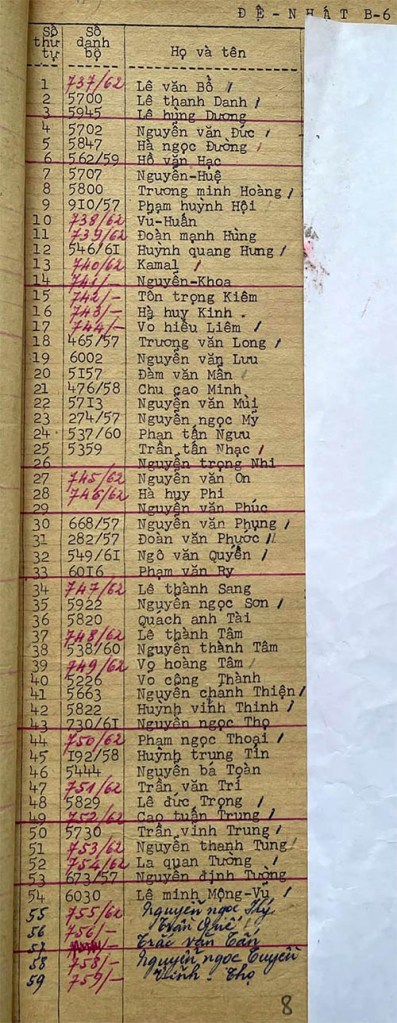 ĐỆ - NHẤT B-6
Số thứ tự Số danh bộ Họ và tên
1 737/62 Lê văn Bồ /
2 5700 Lê thanh Danh /
3 5945 Lê hùng Dương
4 5702 Nguyễn văn Đức /
5 5847 Hà ngọc Đường /
6 562/59 Hồ văn Hạc
7 5707 Nguyễn-Huệ
8 5800 Trương minh Hoàng /
9 910/57 Phạm huỳnh Hội
10 738/62 Vu-Huấn
11 739/62 Đoàn mạnh Hùng
12 546/61 Huỳnh quang Hưng /
13 740/62 Kamal /
14 741/- Nguyễn-Khoa
15 742/- Tôn trọng Kiêm
16 743/- Hà huy Kinh
17 744/- Vo hiếu Liêm /
18 465/57 Trương văn Long /
19 6002 Nguyễn văn Lưu
20 5157 Đàm văn Mẫn /
21 476/58 Chu cao Minh
22 5713 Nguyễn văn Mùi
23 274/57 Nguyễn ngọc Mỹ
24 537/60 Phan tấn Ngưu
25 5359 Trần tấn Nhạc /
26 Nguyễn trọng Nhi
27 745/62 Nguyễn văn On
28 746/62 Hà huy Phi
29 Nguyễn văn Phúc
30 668/57 Nguyễn văn Phụng /
31 282/57 Đoàn văn Phước /
32 549/61 Ngô văn Quyền /
33 6016 Phạm văn Ry
34 747/62 Lê thành Sang
35 5922 Nguyễn ngọc Sơn /
36 5820 Quach anh Tài
37 748/62 Lê thành Tâm
38 538/60 Nguyễn thành Tâm
39 749/62 Vo hoàng Tâm /
40 5226 Vo công Thành
41 5663 Nguyễn chánh Thiện /
42 5822 Huỳnh vinh Thinh /
43 730/61 Nguyễn ngọc Thọ
44 750/62 Phạm ngọc Thoại /
45 192/58 Huỳnh trung Tín
46 5444 Nguyễn bá Toàn
47 751/62 Trần văn Trí
48 5829 Lê đức Trọng /
49 752/62 Cao tuấn Trung /
50 5730 Trần vinh Trung /
51 753/62 Nguyễn thanh Tùng /
52 754/62 La quan Tường /
53 673/57 Nguyễn định Tường
54 6030 Lê minh Mộng-Vu /
55 755/62 Nguyễn ngọc
56 756/- Trần
57 /- Trác văn
58 758/- Nguyễn ngọc Tuyền
59 759/- Vinh - Thọ
8